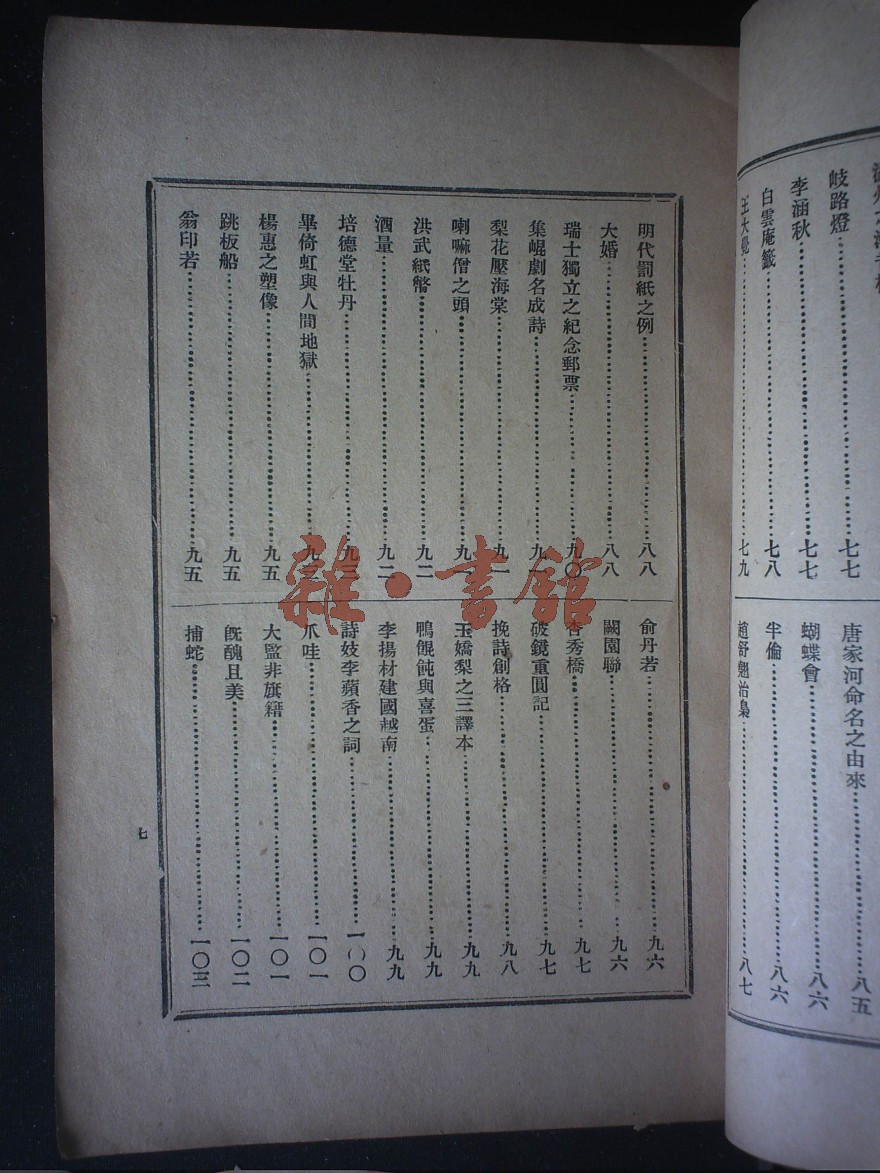 岐路燈 七七
李涵秋 七七
白雲庵籤 七八
王大覺 七九
唐家河命名之由來 八五
蝴蝶會 八六
半倫 八六
趙舒翹治梟 八七
明代罰紙之例 八八
大婚 八八
瑞士獨立之紀念郵票 九〇
集崐劇名成詩
梨花壓海棠 九一
喇嘛僧之頭 九
洪武紙幣 九二
酒量 九二
培德堂牡丹 九三
畢倚虹與人間地獄
楊惠之塑像 九五
跳板船 九五
翁印若 九五
俞丹若 九六
闕園聯 九六
杏秀橋 九七
破鏡重圓記 九七
挽詩創格 九八
玉嬌梨之三譯本 九九
鴨餛飩與喜蛋 九九
李揚材建國越南 九九
詩妓李蘋香之詞 一〇〇
爪哇 一〇一
大監非旗籍 一〇一
既醜且美 一〇二
捕蛇 一〇三
七
雜·書館